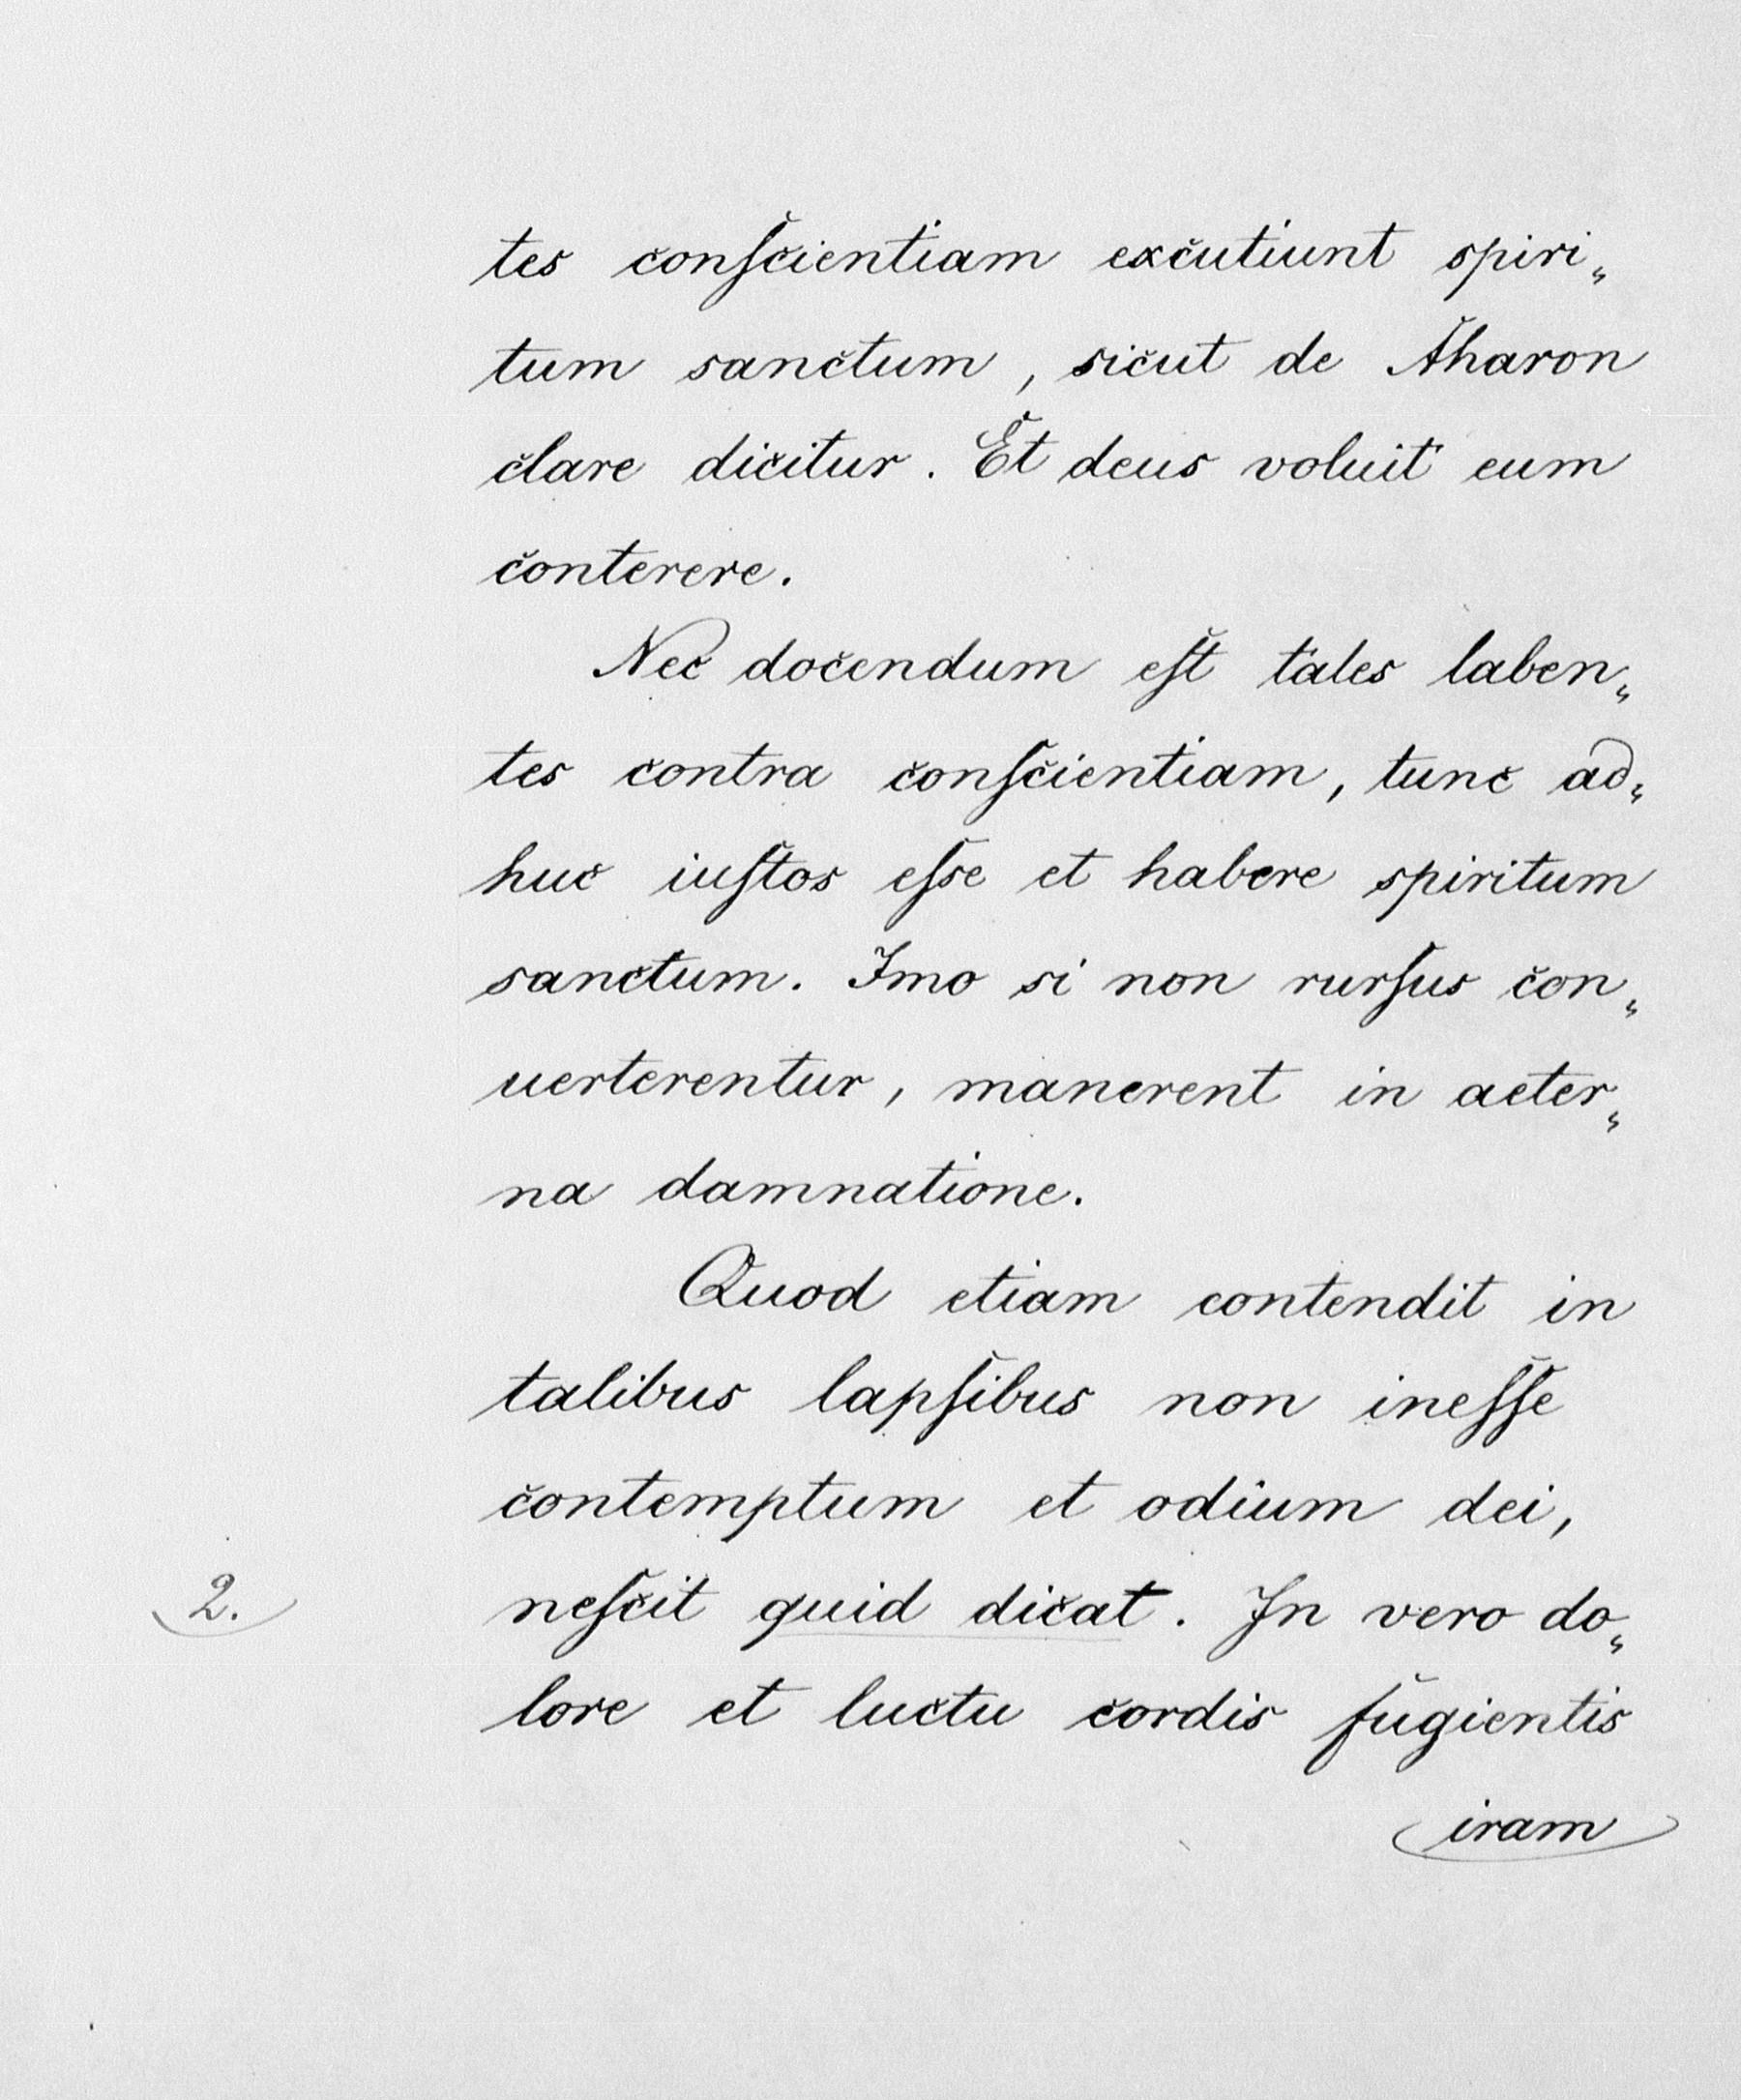 tes conſcientiam excutiunt spiri„
tum sanctum, sicut de Aharon
clare dicitur. Et deus voluit eum
conterere.
Nec docendum eſt tales laben„
tes contra conſcientiam, tunc ad„
huc iuſtos eſse et habere spiritum
sanctum. Imo si non rurſus con„
uerterentur, manerent in aeter„
na damnatione.
Quod etiam contendit in
talibus lapſibus non ineſſe
contemptum et odium dei,
2. neſcit quid dicat. In vero do„
lore et luctu cordis fugientis
iram